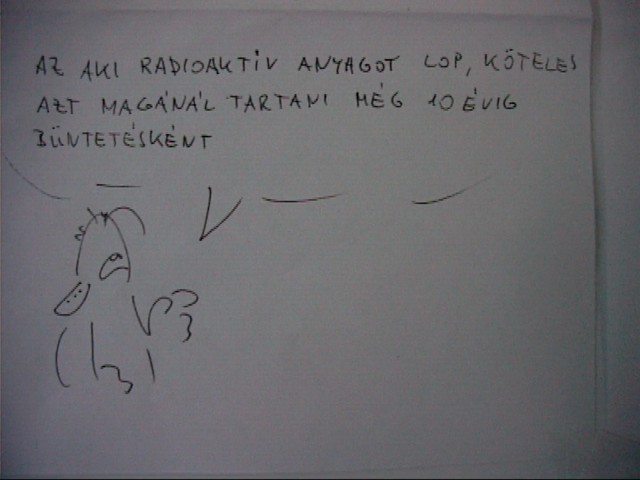 AZ AKI RADIOAKTÍV ANYAGOT LOP, KÖTELES
AZT MAGÁNÁL TARTANI MÉG 10 ÉVIG
BÜNTETÉSKÉNT